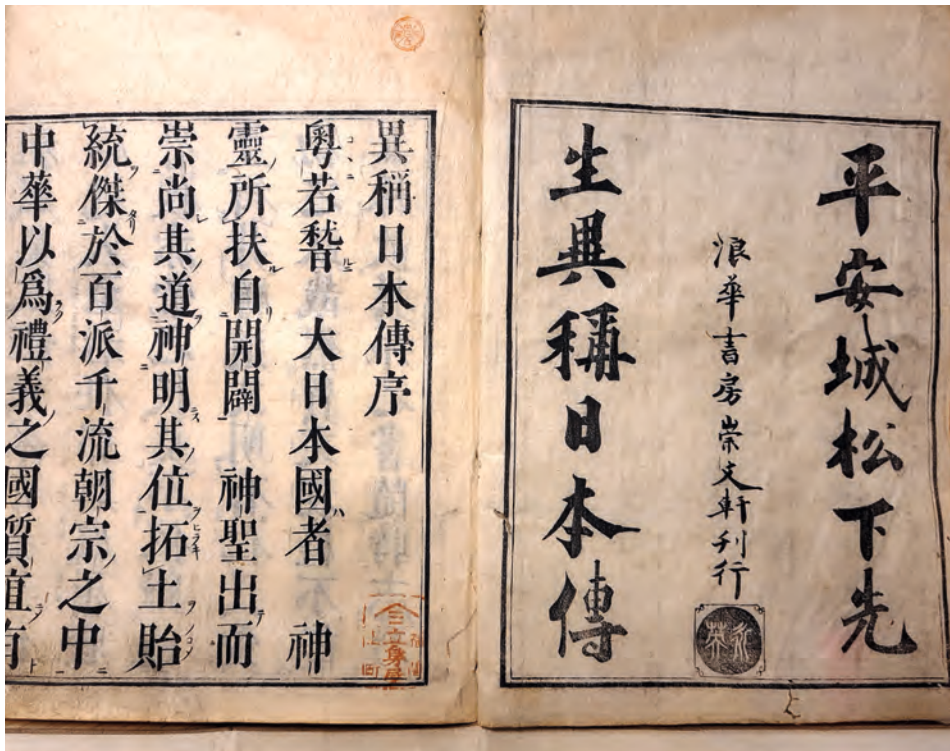 平安城松下先
浪華書房崇文軒刋行
生異稱日本傳
異稱日本傳序
粤若稽大日本國者　神
靈所扶自開闢　神聖出而
崇尚其道神明其位拓土貽
統傑於百派千流朝宗之中
中華以爲禮義之國質直有